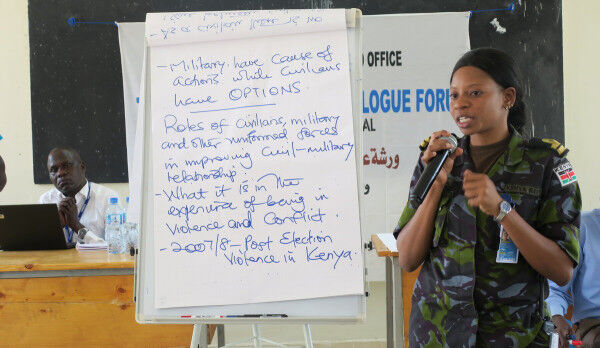 - Military have cause of
actions while Civilians
have OPTIONS.
Roles of civilians, military
and other uniformed forces
in improving Civil-military
relationship.
- What it is in the
experience of being in
Violence and Conflict.
- 2007/8 - Post Election
Violence in Kenya.
OFFICE
LOGUE FORU
AL
ورشة